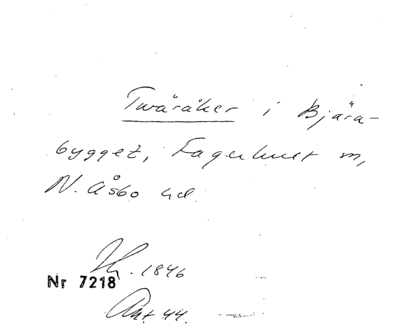 Twäråker i Bjära-
bygget, Fagerhult m,
N. Åsbo hd.
1846
Nr 7218
Ant. 44.